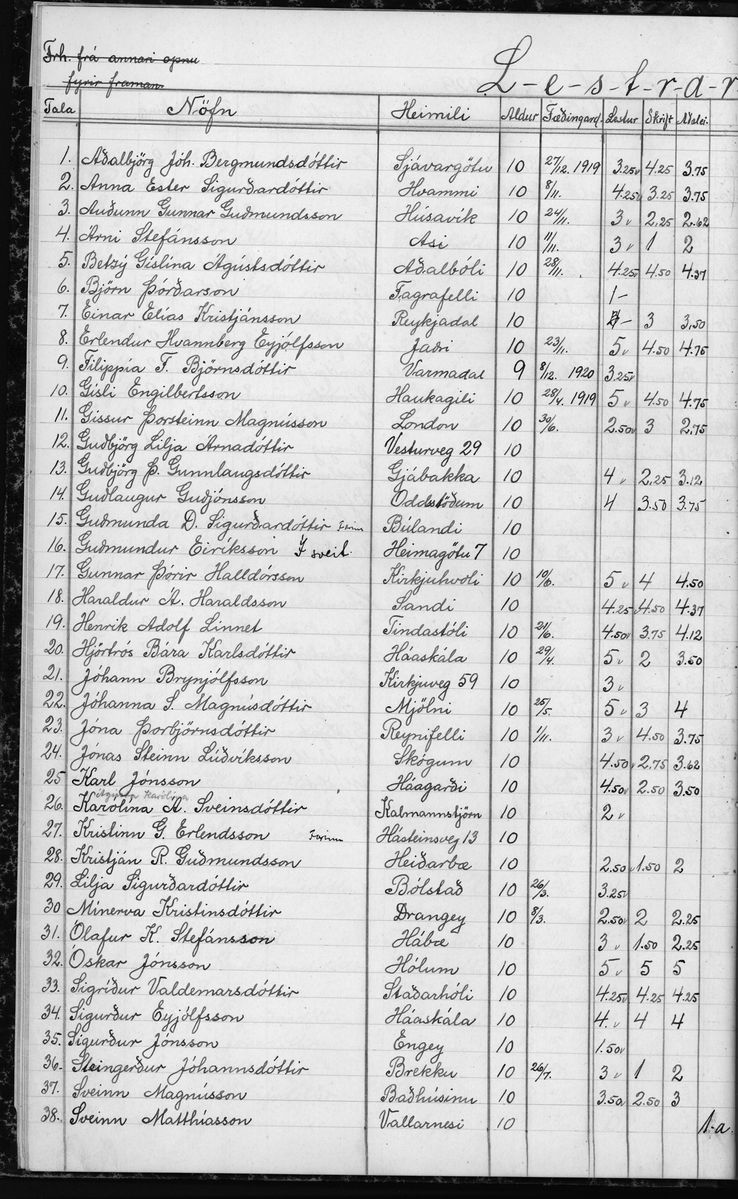 Frh. frá annari opnu
fyrir framan.
L-e-s-t-r-a-r
Tala Nöfn Heimili Aldur Fæðingard. Lestur Skrift Aðalei.
1. Aðalbjörg Jóh. Bergmundsdóttir Sjávargötu 10 27/12. 1919 3.25 v 4.25 3.75
2. Anna Ester Sigurðardóttir Hvammi 10 8/11. 4.25 v 3.25 3.75
3. Auðunn Gunnar Guðmundsson Húsavík 10 24/11. 3 v 2.25 2.62
4. Árni Stefánsson Ási 10 11/11. 3 v 1 2
5. Betzý Gíslína Ágústsdóttir Aðalbóli 10 28/11. 4.25 v 4.50 4.37
6. Björn Þórðarson Fagrafelli 10 1-
7. Einar Elías Kristjánsson Reykjadal 10 4- 3 3.50
8. Erlendur Hvannberg Eyjólfsson Jaðri 10 23/11. 5 v 4.50 4.75
9. Filippía F. Björnsdóttir Varmadal 9 8/12. 1920 3.25 v
10. Gísli Engilbertsson Haukagili 10 28/4. 1919 5 v 4.50 4.75
11. Gissur Þorsteinn Magnússon London 10 30/6. 2.50 v 3 2.75
12. Guðbjörg Lilja Árnadóttir Vesturveg 29 10
13. Guðbjörg Þ. Gunnlaugsdóttir Gjábakka 10 4 v 2.25 3.12
14. Guðlaugur Guðjónsson Oddstöðum 10 4 3.50 3.75
15. Guðmunda D. Sigurðardóttir Farin Búlandi 10
16. Guðmundur Eiríksson Í sveit Heimagötu 7 10
17. Gunnar Þórir Halldórsson Kirkjuhvoli 10 10/6. 5 v 4 4.50
18. Haraldur Á. Haraldsson Sandi 10 4.25 v 4.50 4.37
19. Henrik Adolf Linnet Tindastóli 10 21/6. 4.50 v 3.75 4.12
20. Hjörtrós Bára Karlsdóttir Háaskála 10 29/4. 5 v 2 3.50
21. Jóhann Brynjólfsson Kirkjuveg 59 10 3 v
22. Jóhanna S. Magnúsdóttir Mjölni 10 25/5. 5 v 3 4
23. Jóna Þorbjörnsdóttir Reynifelli 10 1/11. 3 v 4.50 3.75
24. Jónas Steinn Lúðvíksson Skógum 10 4.50 v 2.75 3.62
25 Karl Jónsson Háagarði 10 4.50 v 2.50 3.50
Karolína
26. Karolína A. Sveinsdóttir Kalmannstjörn 10 2 v
27. Kristinn G. Erlendsson Farinn Hásteinsveg 13 10
28. Kristján R. Guðmundsson Heiðarbæ 10 2.50 v 1.50 2
29. Lilja Sigurðardóttir Bólstað 10 26/3. 3.25 v
30 Mínerva Kristinsdóttir Drangey 10 8/3. 2.50 v 2 2.25
31. Ólafur K. Stefánsson Hábæ 10 3 v 1.50 2.25
32. Óskar Jónsson Hólum 10 5 v 5 5
33. Sigríður Valdemarsdóttir Staðarhóli 10 4.25 v 4.25 4.25
34. Sigurður Eyjólfsson Háaskála 10 4. v 4 4
35. Sigurður Jónsson Engey 10 1.50 v
36. Steingerður Jóhannsdóttir Brekku 10 26/7. 3 v 1 2
37. Sveinn Magnússon Baðhúsinu 10 3.50 v 2.50 3
38. Sveinn Matthíasson Vallarnesi 10
1-a.